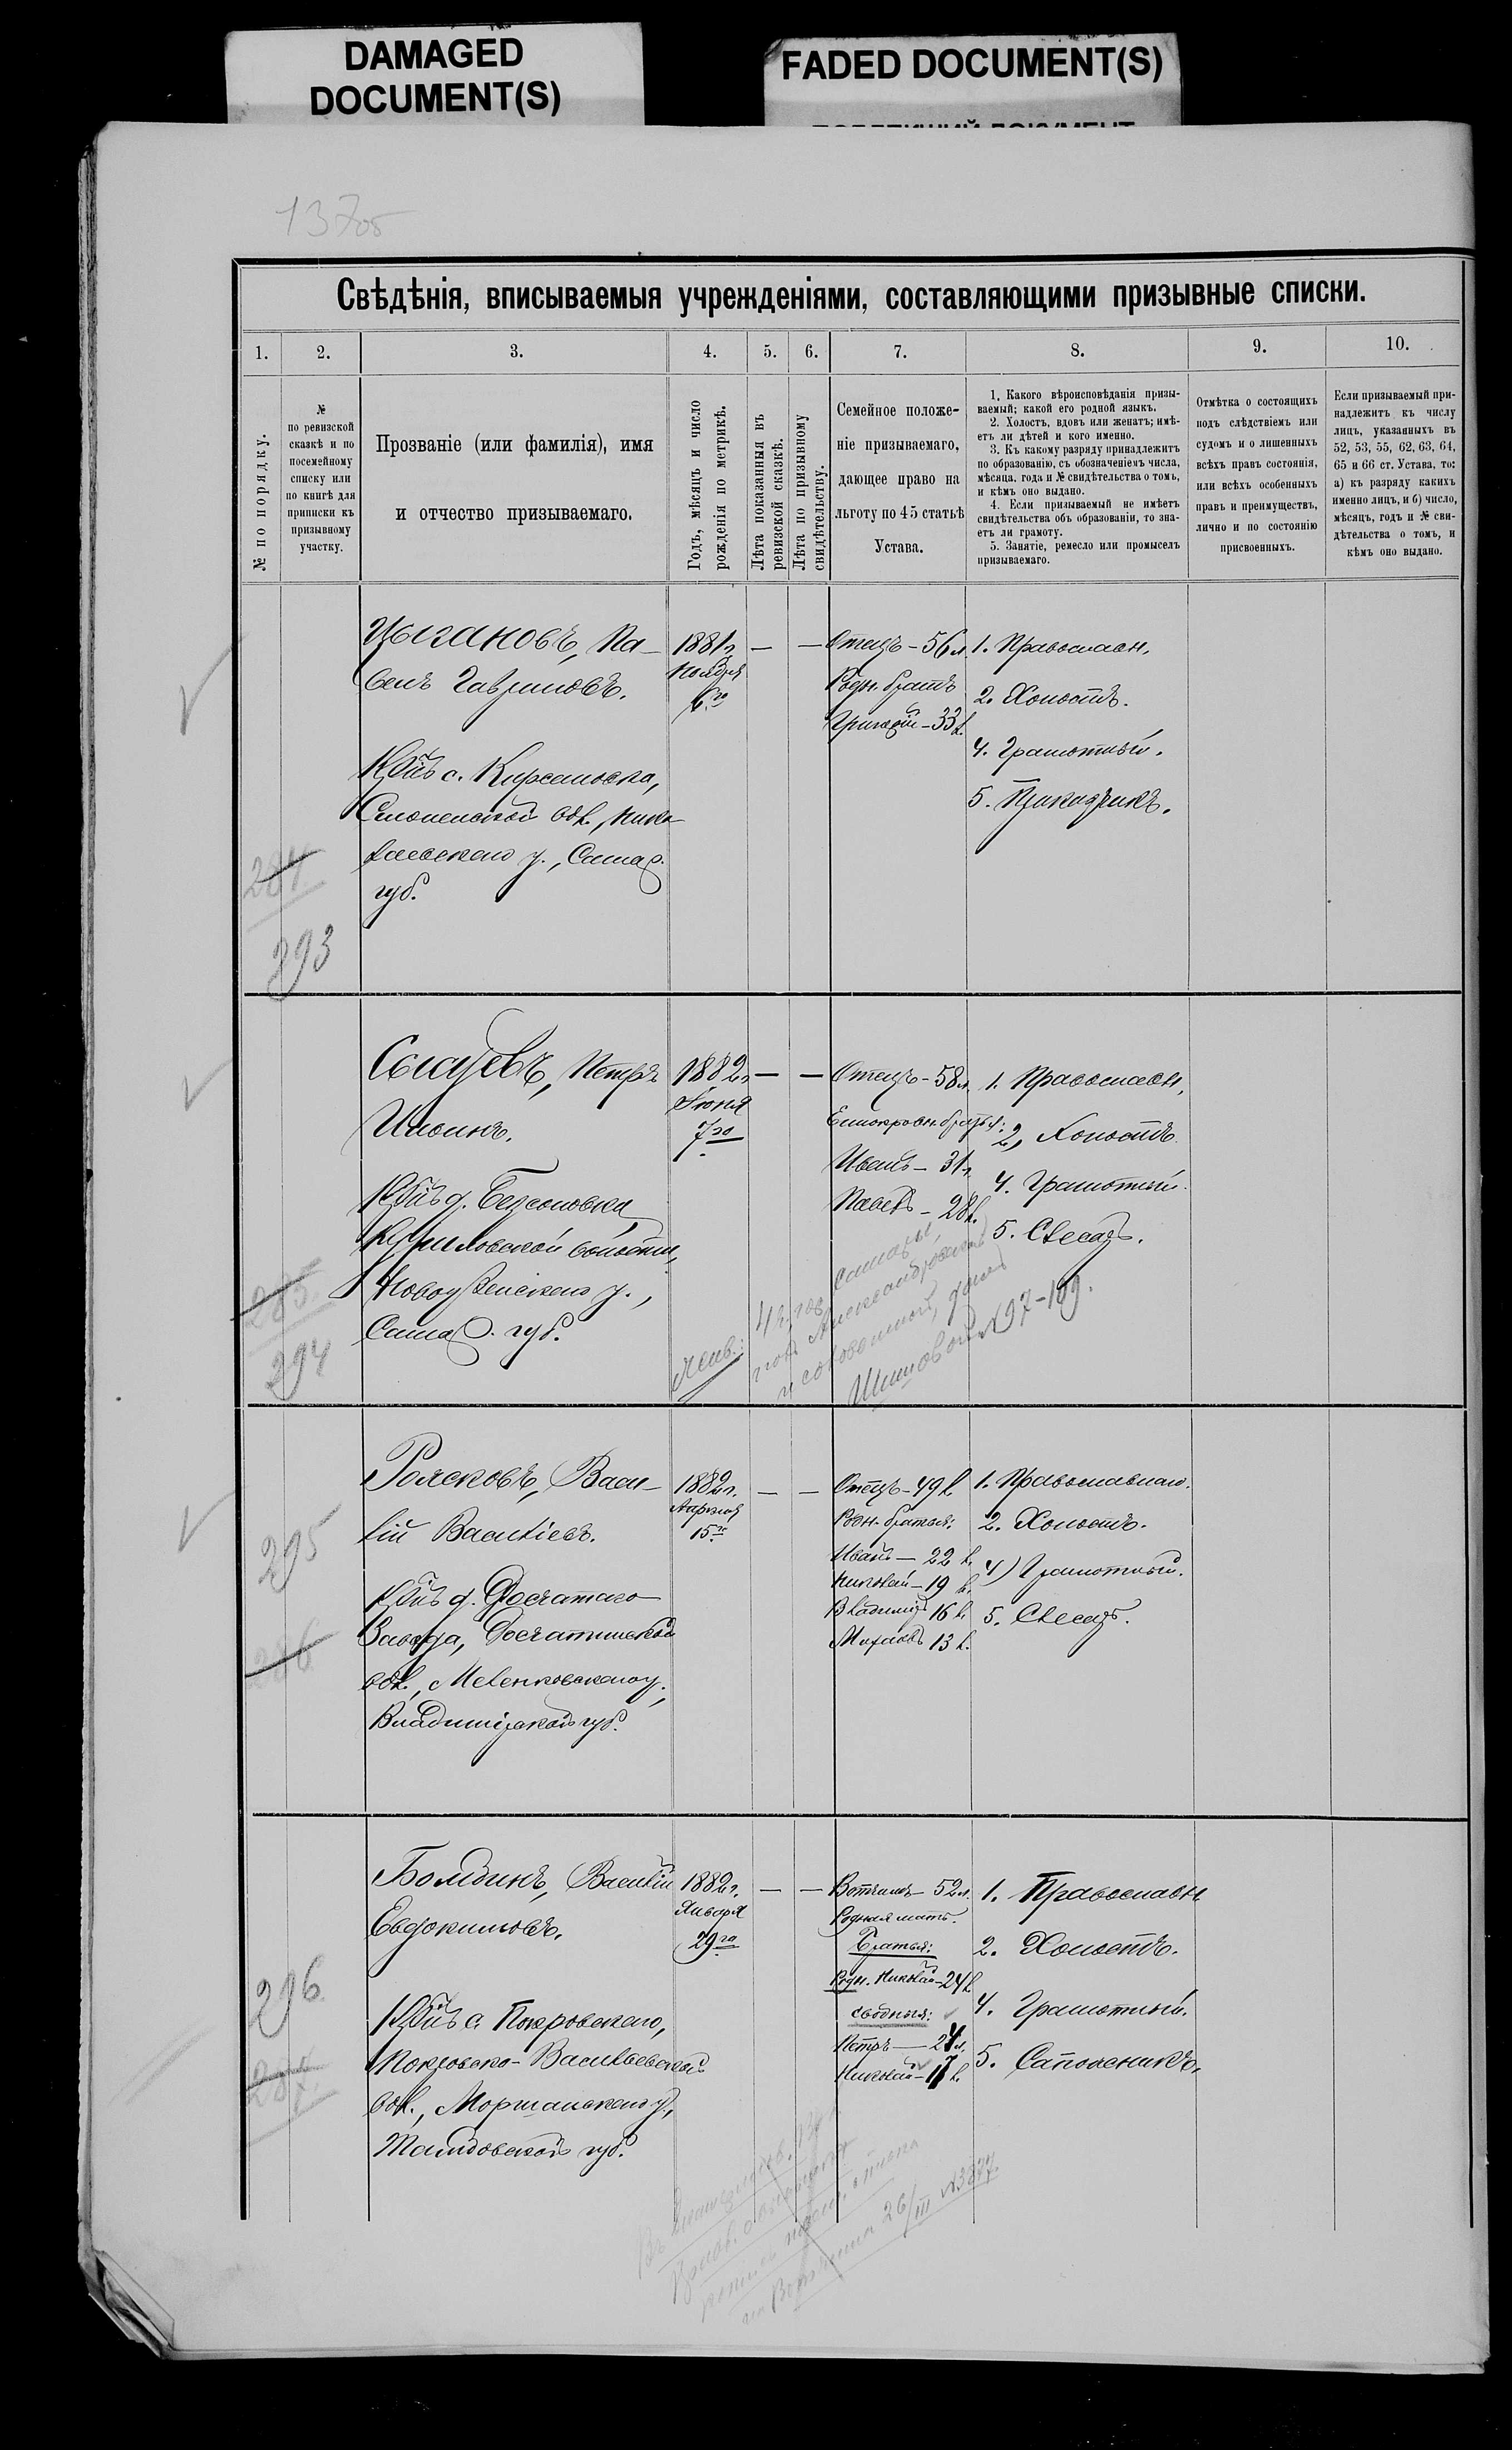 DAMAGED
DOCUMENT(S)
FADED DOCUMENT(S)
Свѣдѣнія, вписываемыя учрежденіями, составляющими призывные списки.
1.
2.
3.
4.
5.
6.
7.
8.
9.
10.
№ по порядку.
№
по ревизской
сказкѣ и по
посемейному
списку или
по книгѣ для
приписки къ
призывному
участку.
Прозваніе (или фамилія), имя
и отчество призываемаго.
Годъ, мѣсяцъ и число
рожденія по метрикѣ.
Лѣта показанныя въ
ревизской сказкѣ.
Лѣта по призывному
свидѣтельству.
Семейное положе-
ніе призываемаго,
дающее право на
льготу по 45 статьѣ
Устава.
1. Какого вѣроисповѣданія призы-
ваемый; какой его родной языкъ.
2. Холостъ, вдовъ или женатъ; имѣ-
етъ ли дѣтей и кого именно.
3. Къ какому разряду принадлежитъ
по образованію, съ обозначеніемъ числа,
мѣсяца, года и № свидѣтельства о томъ,
и кѣмъ оно выдано.
4. Если призываемый не имѣетъ
свидѣтельства объ образованіи, то зна-
етъ ли грамоту.
5. Занятіе, ремесло или промыселъ
призываемаго.
Отмѣтка о состоящихъ
подъ слѣдствіемъ или
судомъ и о лишенныхъ
всѣхъ правъ состоянія,
или всѣхъ особенныхъ
правъ и преимуществъ,
лично и по состоянію
присвоенныхъ.
Если призываемый при-
надлежитъ къ числу
лицъ, указанныхъ въ
52, 53, 55, 62, 63, 64,
65 и 66 ст. Устава, то:
а) къ разряду какихъ
именно лицъ, и б) число,
мѣсяцъ, годъ и № сви-
дѣтельства о томъ, и
кѣмъ оно выдано.
284
293
Цыгановъ, Па-
велъ Гавриловъ.
Кр-нъ с. Кирсановка,
вол., Нико-
лаевскаго у., Самар.
губ.
1881 г.
Ноября
6го
—
—
Отецъ - 56 л.
Родн. братъ
Григорій - 33 л.
1. Православн.
2. Холостъ.
4. Грамотный.
5. Прикащикъ.
285
294
Петръ
Ильинъ.
Кр-нъ д. Бессоновка
волости,
Новоузенскаго у.,
Самар. губ.
1882 г.
Іюня
7го
—
—
Отецъ - 58 л.
Единокровн. братья:
Иванъ - 31 г.
Павелъ - 28 л.
1. Православн.
2, Холостъ
4. Грамотный.
5. Слесарь.
№ 97-109.
295
286
Полсковъ, Васи-
лій Васильевъ.
Кр-нъ д. Досчатаго
Завода, Досчатинской
вол., Меленковскаго у.,
Владимірской губ.
1882 г.
Апрѣля
15го
—
—
Отецъ - 49 л.
Родн. братья:
Иванъ - 22 л.
Николай - 19 л.
Владиміръ 16 л.
Михаилъ 13 л.
1. Православнаго.
2. Холостъ.
4) Грамотный.
5. Слесарь.
296
287
Болдинъ, Василій
Евдокимовъ.
Кр-нъ с. Покровскаго,
Покровско-Васильевской
вол., Моршанскаго у.,
Тамбовской губ.
1882 г.
Января
29го
—
—
Вотчимъ - 52 л.
Родная мать.
Братья:
Родн. Николай - 24 л.
сводныя:
Петръ — 24 л.
Николай - 17 л.
1. Православн.
2. Холостъ.
4. Грамотный.
5. Сапожникъ.